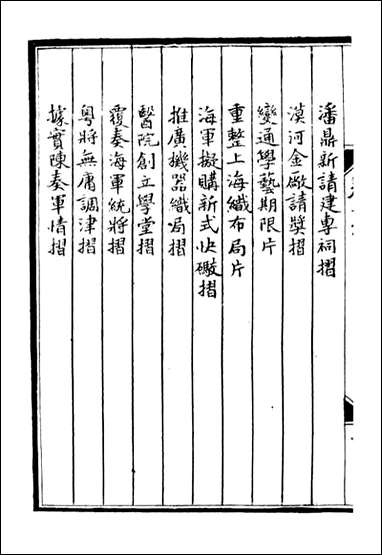 潘鼎新請建專祠摺
漠河金廠請奬摺
變通學藝期限片
重整上海織布局片
海軍擬購新式快礮摺
推廣機器織局摺
醫院創立學堂摺
覆奏海軍統將摺
粵將無庸調津摺
據實陳奏軍情摺